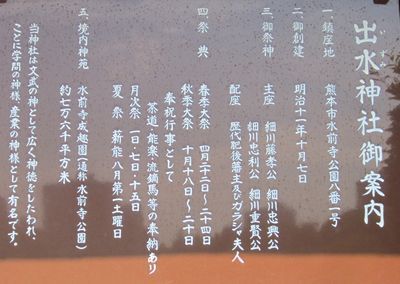 出水神社御案内
いずみ
一、鎮座地　熊本市水前寺公園八番一号
二、御創建　明治十一年十月七日
三、御祭神　主座　細川藤孝公　細川忠興公
細川忠利公　細川重賢公
配座　歴代肥後藩主及びガラシャ夫人
四、祭典　春季大祭　四月二十二日〜二十四日
秋季大祭　十月十八日〜二十日
奉祝行事として
茶道・能楽・流鏑馬等の奉納あり
月次祭　一日・七日・十五日
夏祭　薪能八月第一土曜日
五、境内神苑　水前寺成趣園(通称 水前寺公園)
約七万六千平方米
当神社は文武の神として広く神徳をしたわれ、
ことに学問の神様、産業の神様として有名です。